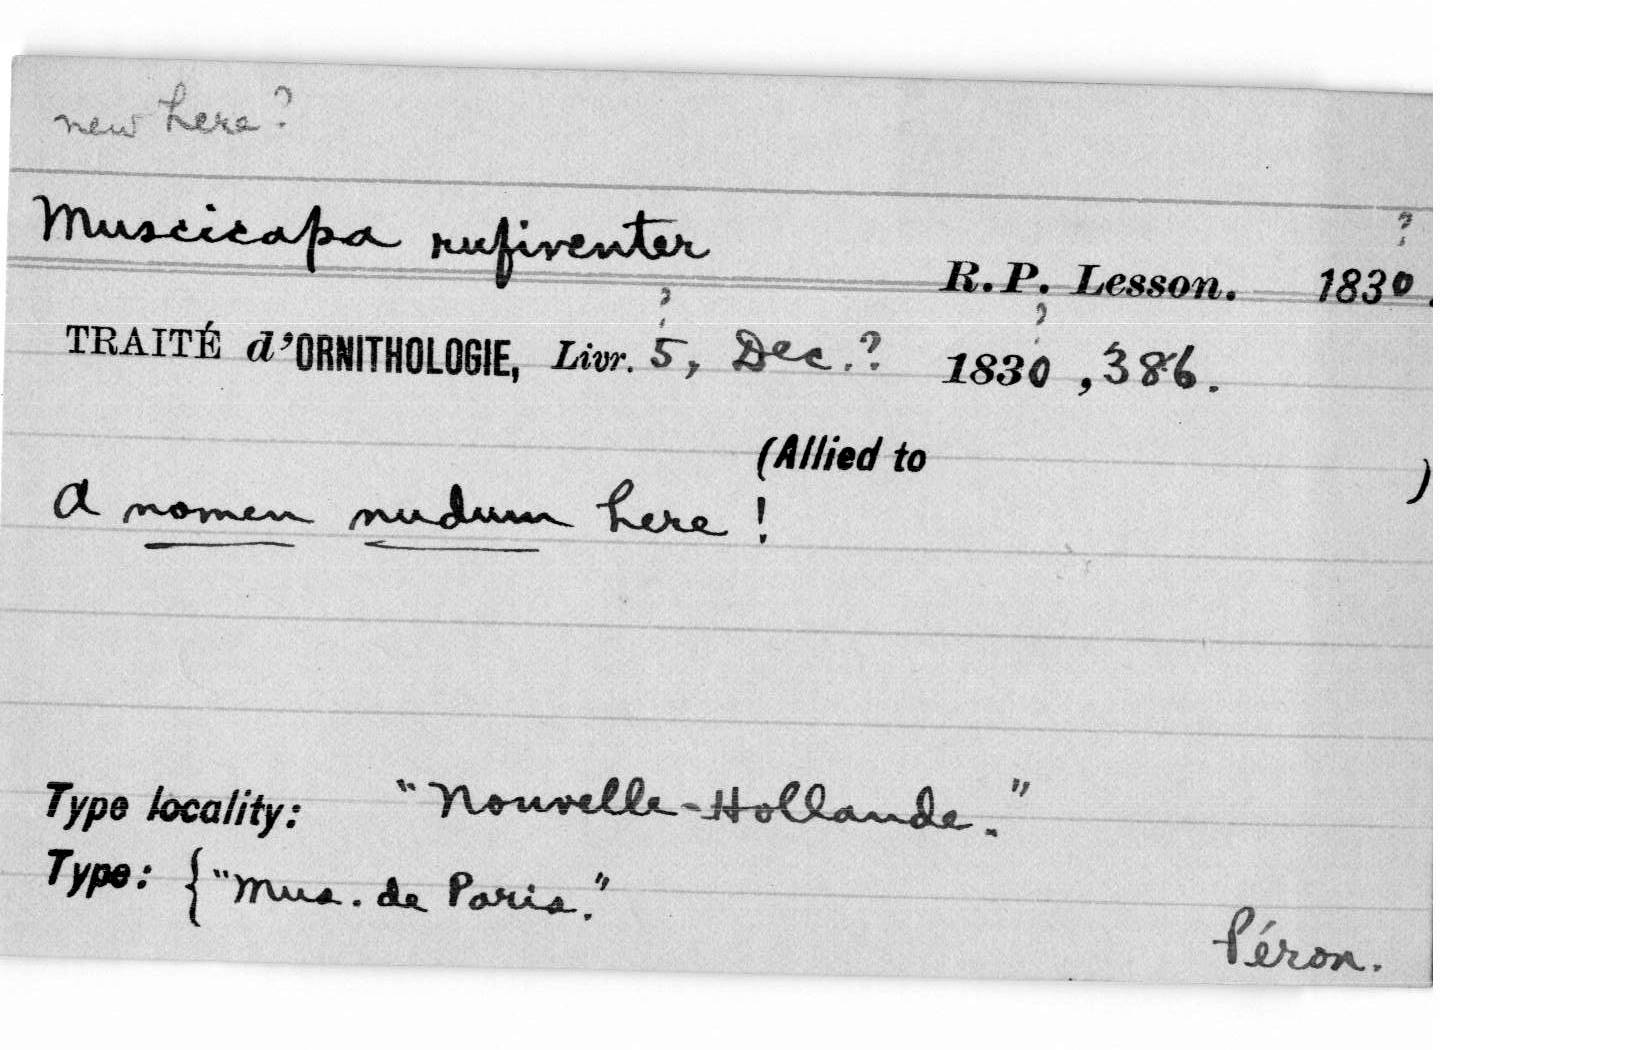 new here?
Muscicapa rufiventer
?
R.P. Lesson. 1830.
? ?
TRAITÉ d'ORNITHOLOGIE, Livr. 5, Dec.? 1830, 386.
(Allied to )
A nomen nudum here!
Type locality: "Nouvelle-Hollande."
Type: {"Mus. de Paris."
Péron.